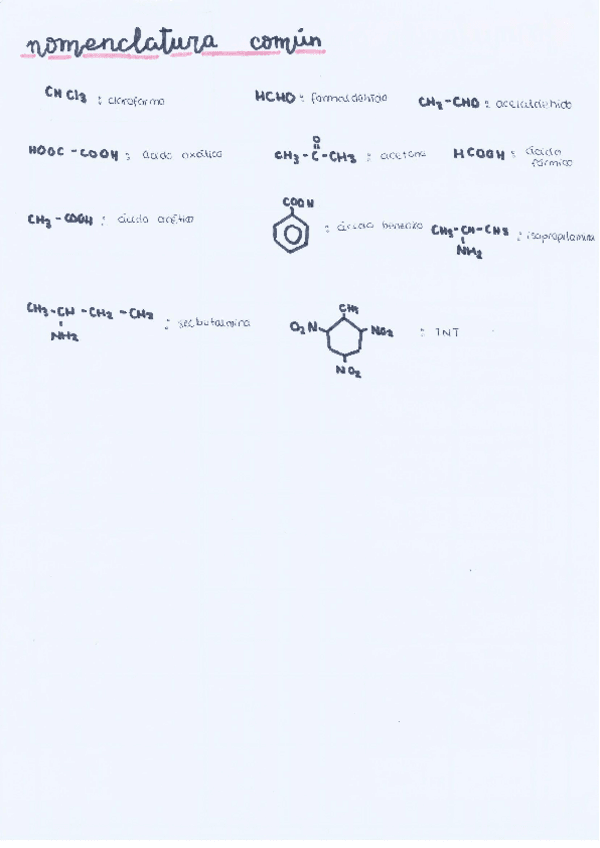 nomenclatura común
CHCl3 : cloroformo
HCHO : formaldehído
CH3-CHO : acetaldehído
HOOC-COOH : ácido oxálico
O
CH3-C-CH3 : acetona
HCOOH : ácido
fórmico
CH3-COOH : ácido acético
COOH
: ácido benzoico
CH3-CH-CH3 : isopropilamina
NH2
CH3-CH-CH2-CH3 : secbutalmina
NH2
CH3
O2N NO2 : TNT
NO2